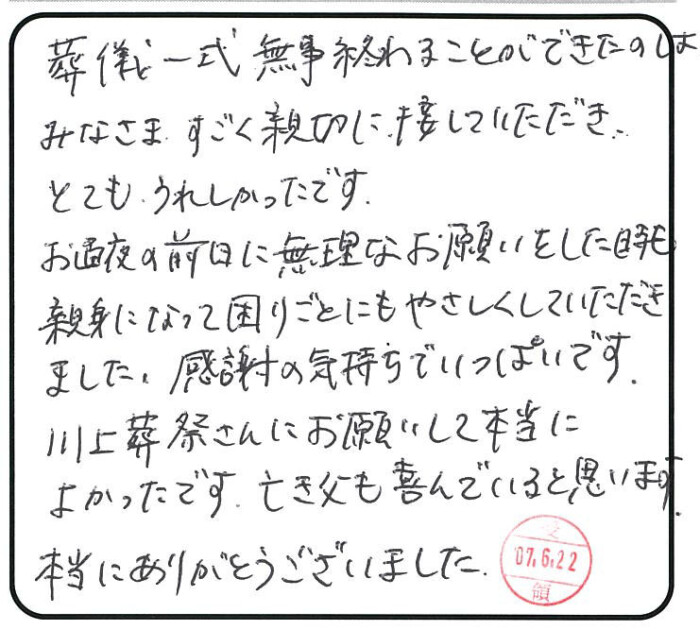 葬儀一式無事終わることができたのは
みなさま.すごく親切に.接していただき、
とても.うれしかったです.
お通夜の前日に無理なお願いをした時も
親身になって困りごとにもやさしくしていただき
ました、感謝の気持ちでいっぱいです.
川上葬祭さんにお願いして本当に
よかったです.亡き父も喜んでいると思います.
本当にありがとうございました.
受
'07.6.22
領